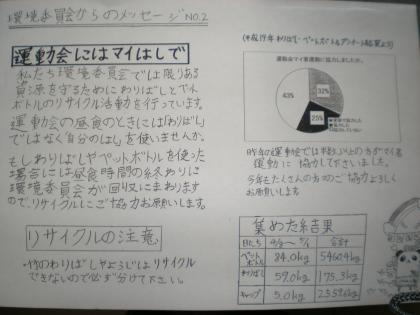 環境委員会からのメッセージNO.2
運動会にはマイはしで
私たち環境委員会では限りある
資源を守るためにわりばしとペット
ボトルのリサイクル活動を行っています。
運動会の昼食のときには「わりばし」
ではなく自分のはしを使いませんか。
もしわりばしやペットボトルを使った
場合には昼食時間の終わりに
環境委員会が回収にまわります
ので、リサイクルにご協力お願いします。
リサイクルの注意
・竹のわりばしやようじはリサイクル
できないので必ず分けて下さい。
(平成19年わりばし・ペットボトルアンケート結果より)
運動会マイ箸運動に協力しましたか。
43%
32%
25%
昨年の運動会では半数以上の方がマイ箸
運動に協力して下さいました。
今年もたくさんの方のご協力よろしく
お願いします。
集めた結果
日にち
合計
ペットボトル
84.0kg
5460.4kg
わりばし
59.0kg
175.3kg
キャップ
5.0kg
255.9kg